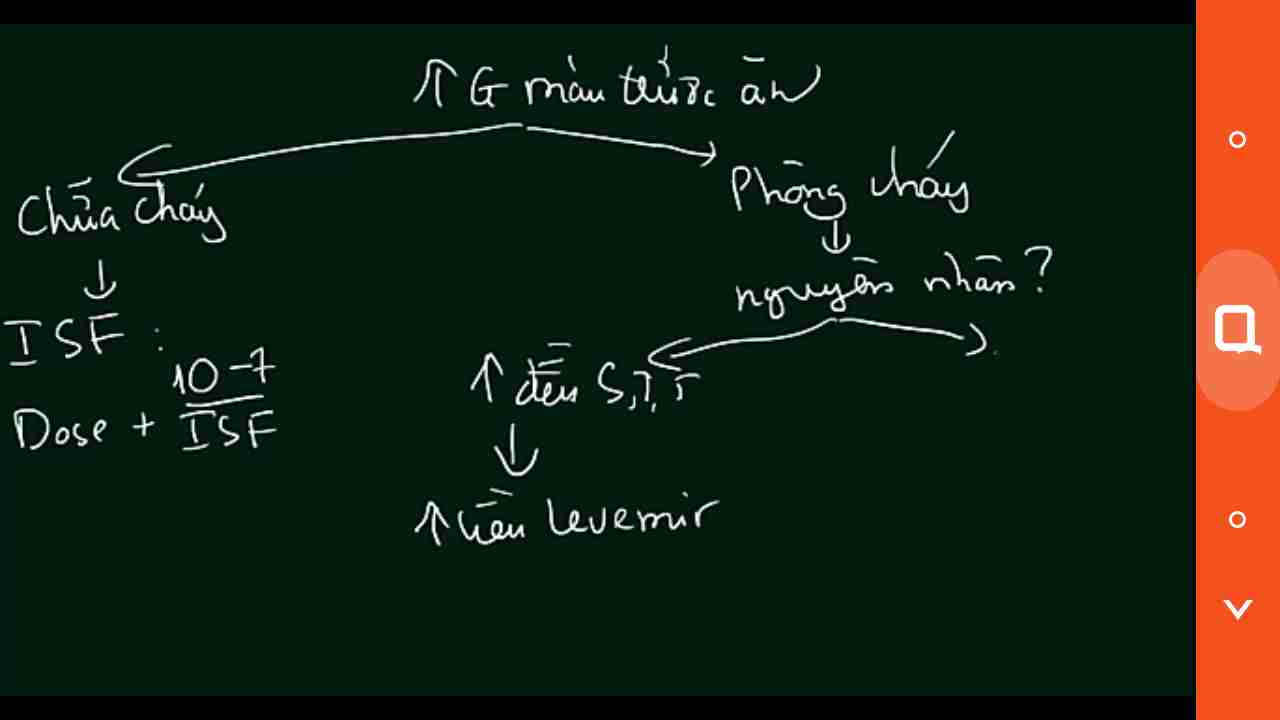 ↑ G máu thức ăn
Chữa cháy
↓
ISF :
Dose + 10-7/ISF
Phòng cháy
↓
nguyên nhân?
↑ đều S,T,T
↓
↑ liều Levemir